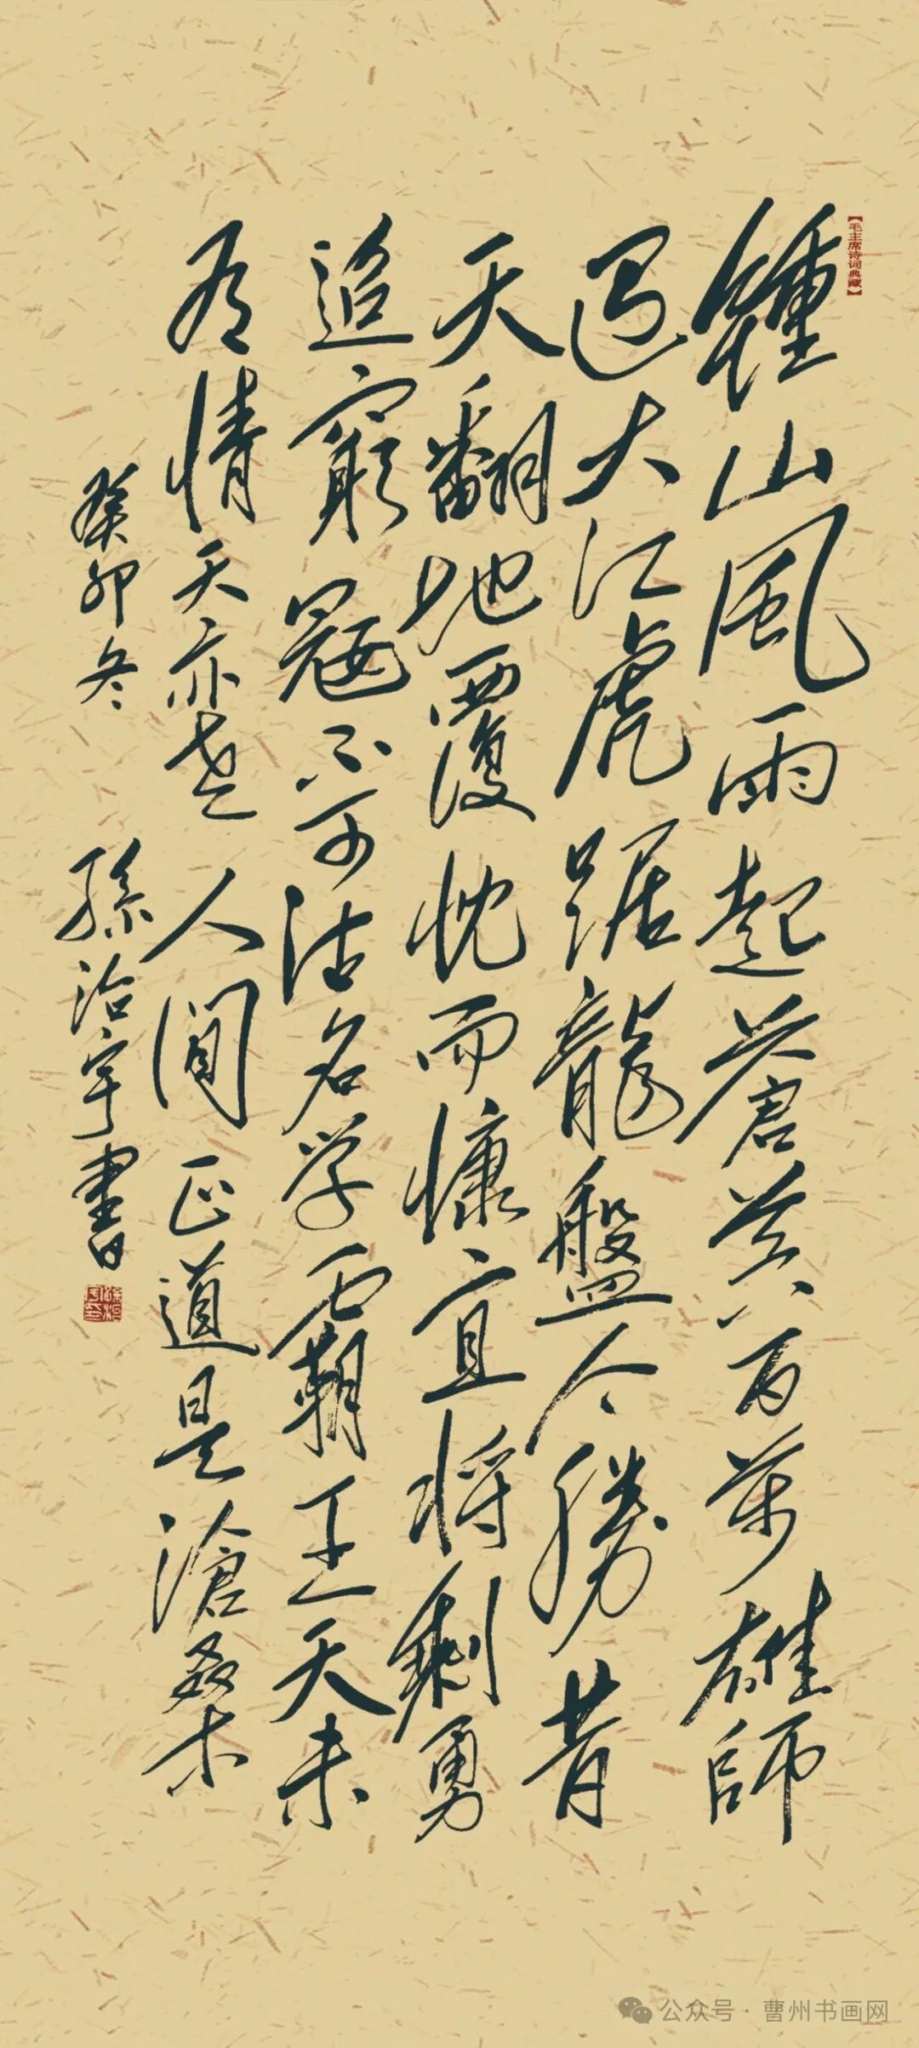 【毛主席诗词典藏】
鍾山風雨起蒼黃百萬雄師
過大江虎踞龍盤今勝昔
天翻地覆慨而慷宜將剩勇
追窮寇不可沽名學霸王天若
有情天亦老人間正道是滄桑
癸卯冬 孫治宇書
公众号·曹州书画网